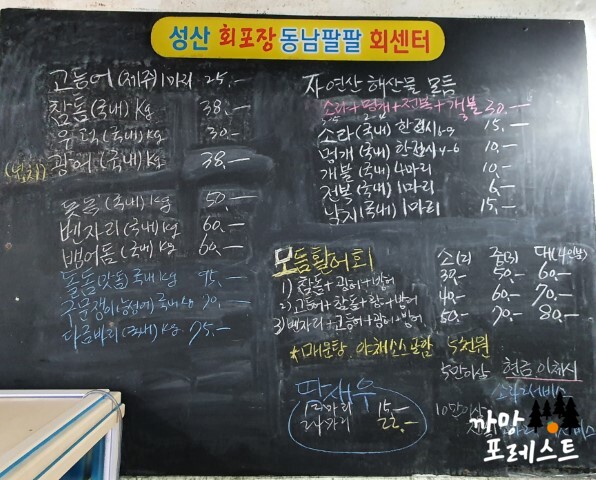 성산 회포장 동남팔팔 회센터
고등어 (제주) 1마리 25.—
참돔 (국내) kg 38.—
우럭 (국내) kg 30.—
광어 (국내) kg 38.—
(국내) kg 50.—
벤자리 (국내) kg 60.—
뱅어돔 (국내) kg 60.—
돌돔 국내 kg 95.—
다금바리 (국내) kg
자연산 해산물 모듬
소라+멍게+전복+개불 30.—
소라 (국내) 한접시 15.—
멍게 (국내) 한접시 4-6 10.—
개불 (국내) 4마리 10.—
전복 (국내) 1마리 6.—
낙지 (국내) 1마리 15.—
모듬활어회 소(2) 중(3) 대(4인분)
1) 참돔+광어+방어 30.— 50.— 60.—
2) 고등어+참돔+광+방어 40.— 60.— 70.—
3) 벤자리+고등어+광어+방어 50.— 70.— 80.—
*매운탕 야채소스포함 5천원
5만이상 현금 이체시
소라서비스
10만이상
딱새우
15.—
22.—
까망
포레스트